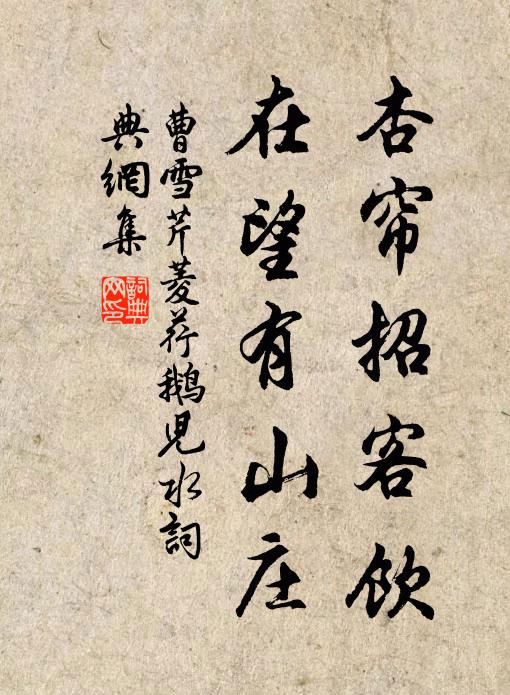 杏帘招客饮
在望有山庄
曹雪芹菱荇鹅儿水词
典網集
詞典
网印